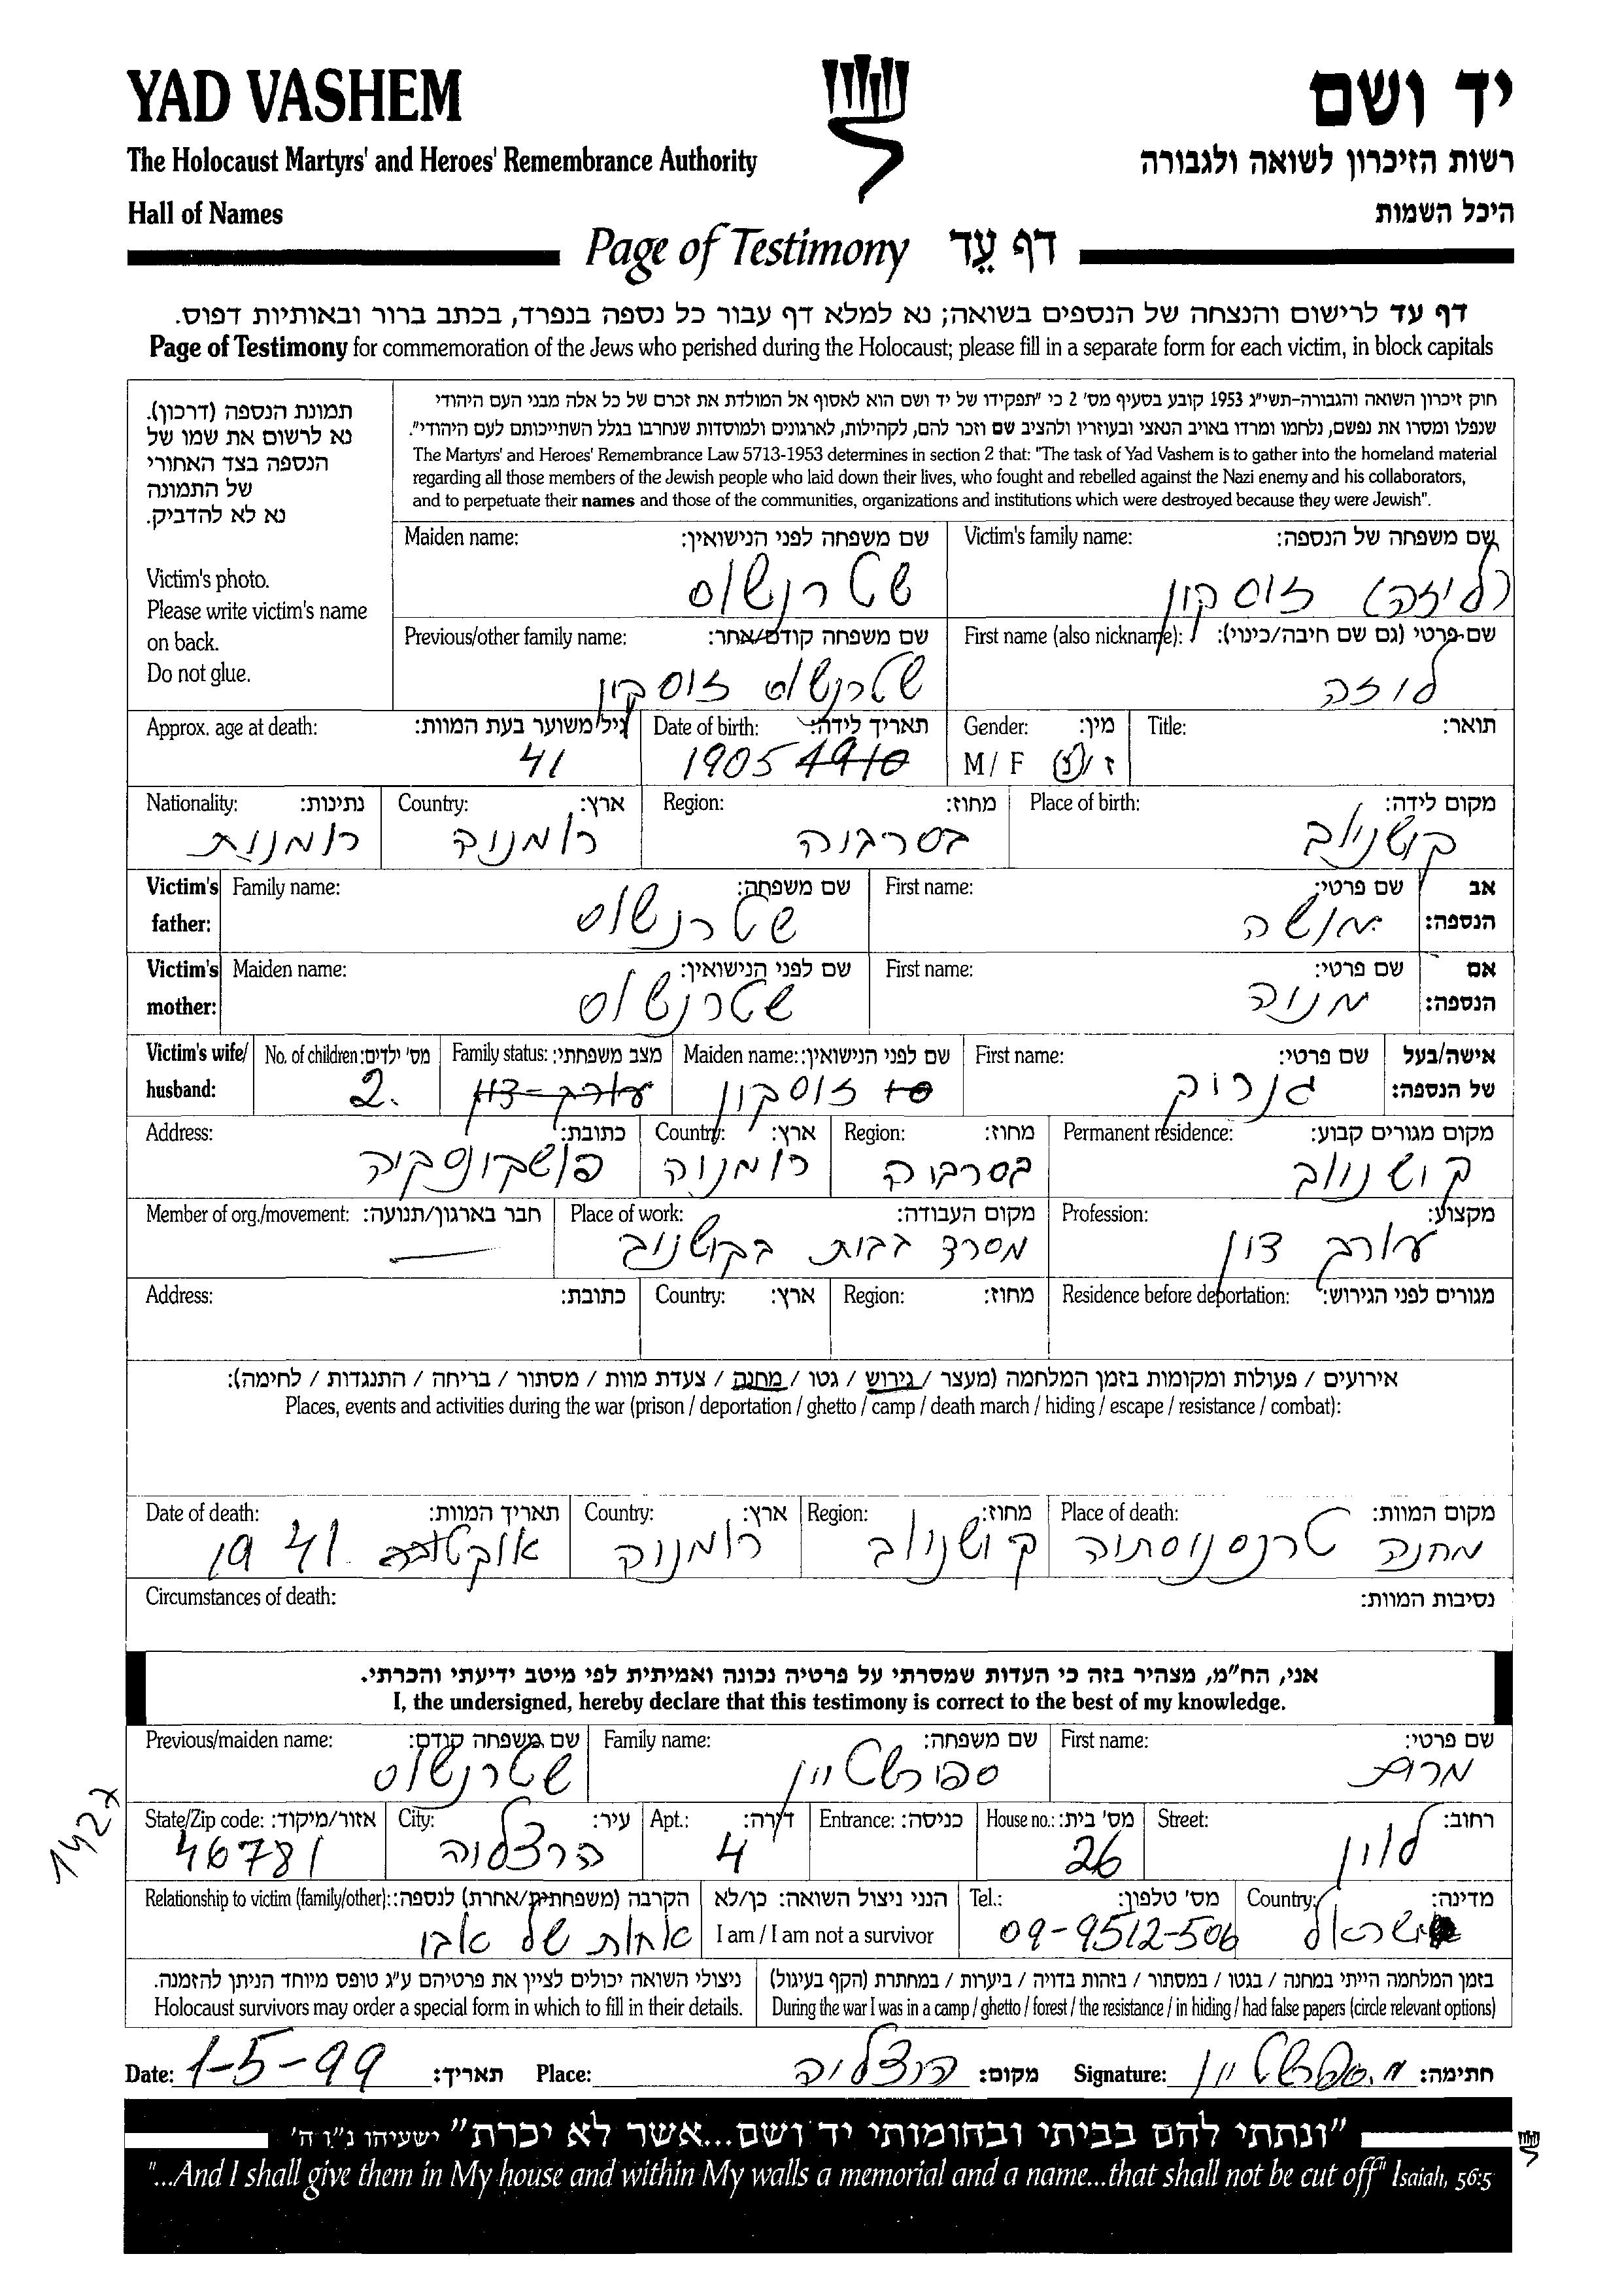 YAD VASHEM
יד ושם
The Holocaust Martyrs' and Heroes' Remembrance Authority
רשות הזיכרון לשואה ולגבורה
Hall of Names
היכל השמות
Page of Testimony דף עֵד
דף עד לרישום והנצחה של הנספים בשואה; נא למלא דף עבור כל נספה בנפרד, בכתב ברור ובאותיות דפוס.
Page of Testimony for commemoration of the Jews who perished during the Holocaust; please fill in a separate form for each victim, in block capitals
תמונת הנספה (דרכון).
נא לרשום את שמו של
הנספה בצד האחורי
של התמונה
נא לא להדביק.
Victim's photo.
Please write victim's name
on back.
Do not glue.
חוק זיכרון השואה והגבורה-תשי"ג 1953 קובע בסעיף מס' 2 כי "תפקידו של יד ושם הוא לאסוף אל המולדת את זכרם של כל אלה מבני העם היהודי
שנפלו ומסרו את נפשם, נלחמו ומרדו באויב הנאצי ובעוזריו ולהציב שם וזכר להם, לקהילות, לארגונים ולמוסדות שנחרבו בגלל השתייכותם לעם היהודי".
The Martyrs' and Heroes' Remembrance Law 5713-1953 determines in section 2 that: "The task of Yad Vashem is to gather into the homeland material
regarding all those members of the Jewish people who laid down their lives, who fought and rebelled against the Nazi enemy and his collaborators,
and to perpetuate their names and those of the communities, organizations and institutions which were destroyed because they were Jewish".
Victim's family name: שם משפחה של הנספה:
(ליזה) זוסקון
Maiden name: שם משפחה לפני הנישואין:
שטרנשוס
First name (also nickname): שם פרטי (גם שם חיבה/כינוי):
לוזה
Previous/other family name: שם משפחה קודם/אחר:
שטרנשוס זוסקון
Title: תואר:
Gender: מין:
M / F ז / נ
Date of birth: תאריך לידה:
1905 1910
Approx. age at death: גיל משוער בעת המוות:
41
Place of birth: מקום לידה:
קושנוב
Region: מחוז:
בסרבוה
Country: ארץ:
רומנוה
Nationality: נתינות:
רומנות
Victim's father: אב הנספה:
First name: שם פרטי:
מושה
Family name: שם משפחה:
שטרנשוס
Victim's mother: אם הנספה:
First name: שם פרטי:
מנוה
Maiden name: שם לפני הנישואין:
שטרנשוס
Victim's wife/ husband: אישה/בעל של הנספה:
First name: שם פרטי:
Maiden name: שם לפני הנישואין:
זוסקון
Family status: מצב משפחתי:
עורך-דון
No. of children: מס' ילדים:
2.
Permanent residence: מקום מגורים קבוע:
קושנוב
Region: מחוז:
בסרבוה
Country: ארץ:
רומנוה
Address: כתובת:
פושקונסקיה
Profession: מקצוע:
עורך דון
Place of work: מקום העבודה:
מסרד בבות בקושנוב
Member of org./movement: חבר בארגון/תנועה:
Residence before deportation: מגורים לפני הגירוש:
Region: מחוז:
Country: ארץ:
Address: כתובת:
אירועים / פעולות ומקומות בזמן המלחמה (מעצר / גירוש / גטו / מחנה / צעדת מוות / מסתור / בריחה / התנגדות / לחימה):
Places, events and activities during the war (prison / deportation / ghetto / camp / death march / hiding / escape / resistance / combat):
Place of death: מקום המוות:
מחנה טרנסנוסתוה
Region: מחוז:
קושנוב
Country: ארץ:
רומנוה
Date of death: תאריך המוות:
1941
Circumstances of death: נסיבות המוות:
אני, הח"מ, מצהיר בזה כי העדות שמסרתי על פרטיה נכונה ואמיתית לפי מיטב ידיעתי והכרתי.
I, the undersigned, hereby declare that this testimony is correct to the best of my knowledge.
First name: שם פרטי:
Family name: שם משפחה:
ספורשטיין
Previous/maiden name: שם משפחה קודם:
שטרנשוס
Street: רחוב:
לוין
House no.: מס' בית:
26
Entrance: כניסה:
Apt.: דירה:
4
City: עיר:
הרצלוה
State/Zip code: אזור/מיקוד:
46781
1427
Country: מדינה:
ישראל
Tel.: מס' טלפון:
09-9512-506
הנני ניצול השואה: כן/לא
I am / I am not a survivor
Relationship to victim (family/other): הקרבה (משפחתית/אחרת) לנספה:
אחות של אבו
בזמן המלחמה הייתי במחנה / בגטו / במסתור / בזהות בדויה / ביערות / במחתרת (הקף בעיגול)
During the war I was in a camp / ghetto / forest / the resistance / in hiding / had false papers (circle relevant options)
ניצולי השואה יכולים לציין את פרטיהם ע"ג טופס מיוחד הניתן להזמנה.
Holocaust survivors may order a special form in which to fill in their details.
Date: 1-5-99 תאריך: Place: הרצלוה מקום: Signature: חתימה:
"ונתתי להם בביתי ובחומותי יד ושם...אשר לא יכרת" ישעיהו נ"ו ה'
"...And I shall give them in My house and within My walls a memorial and a name...that shall not be cut off" Isaiah, 56:5